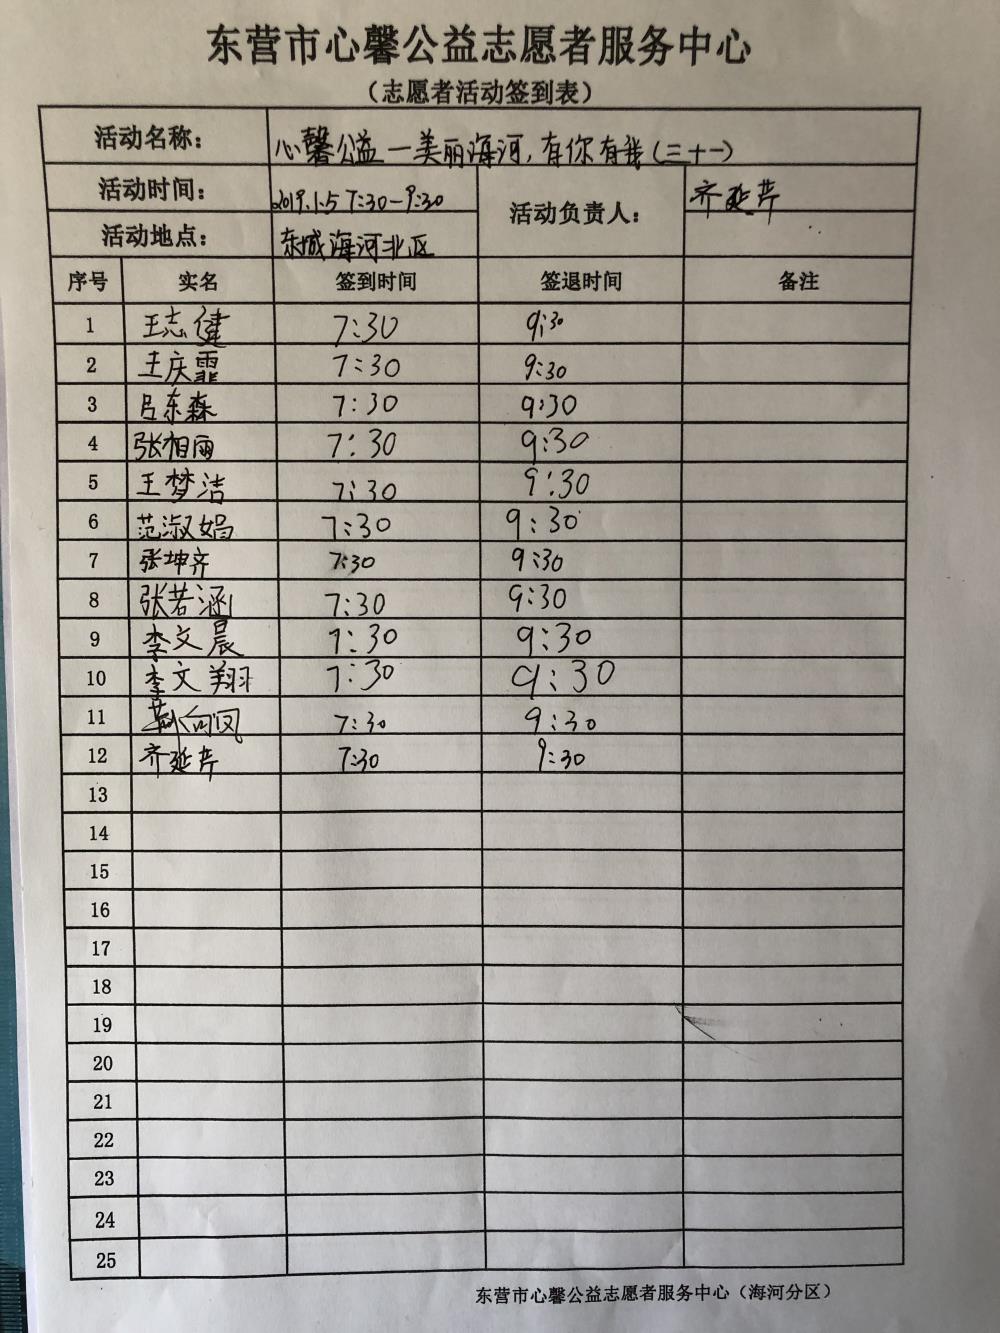 东营市心馨公益志愿者服务中心
（志愿者活动签到表）
活动名称： 心馨公益一美丽海河，有你有我（三十一）
活动时间： 2019.1.5 7:30-9:30 活动负责人： 齐延芹
活动地点： 东城海河北区
序号 实名 签到时间 签退时间 备注
1 王志健 7:30 9:30
2 王庆霏 7:30 9:30
3 吕东森 7:30 9:30
4 张相雨 7:30 9:30
5 王梦洁 7:30 9:30
6 范淑娟 7:30 9:30
7 张坤齐 7:30 9:30
8 张若涵 7:30 9:30
9 李文晨 7:30 9:30
10 李文翔 7:30 9:30
11 向凤 7:30 9:30
12 齐延芹 7:30 9:30
13
14
15
16
17
18
19
20
21
22
23
24
25
东营市心馨公益志愿者服务中心（海河分区）